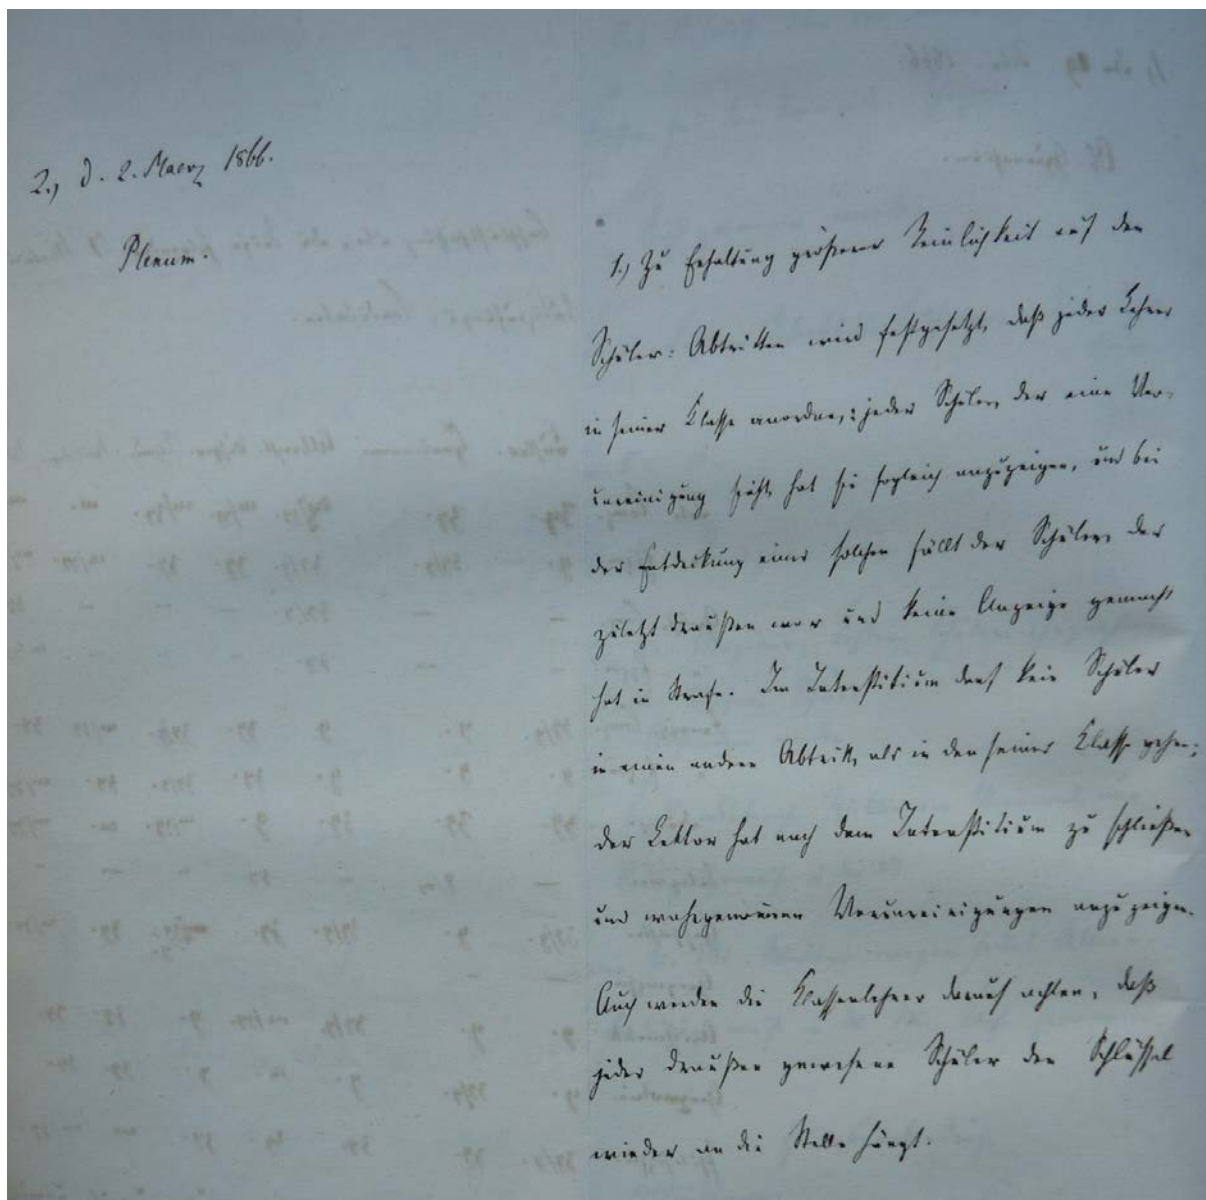 2., d. 2. Maerz 1866.
Plenum.
1.) Zu Erhaltung größerer Reinlichkeit auf den
Schüler-Abtritten wird festgesetzt, daß jeder Lehrer
in seiner Klasse anordne,: jeder Schüler, der eine Ver-
unreinigung sieht, hat sie sogleich anzuzeigen, und bei
der Entdeckung einer solchen fällt der Schüler, der
zuletzt draußen war und keine Anzeige gemacht
hat in Strafe. Im Interstitium darf kein Schüler
in einen andern Abtritt, als in den seiner Klasse gehen;
der Lektor hat nach dem Interstitium zu schließen
und wahrgenommen Verunreinigungen anzuzeigen.
Auch werden die Klassenlehrer darauf achten, daß
jeder draußen gewesene Schüler den Schlüssel
wieder an die Stelle hängt.